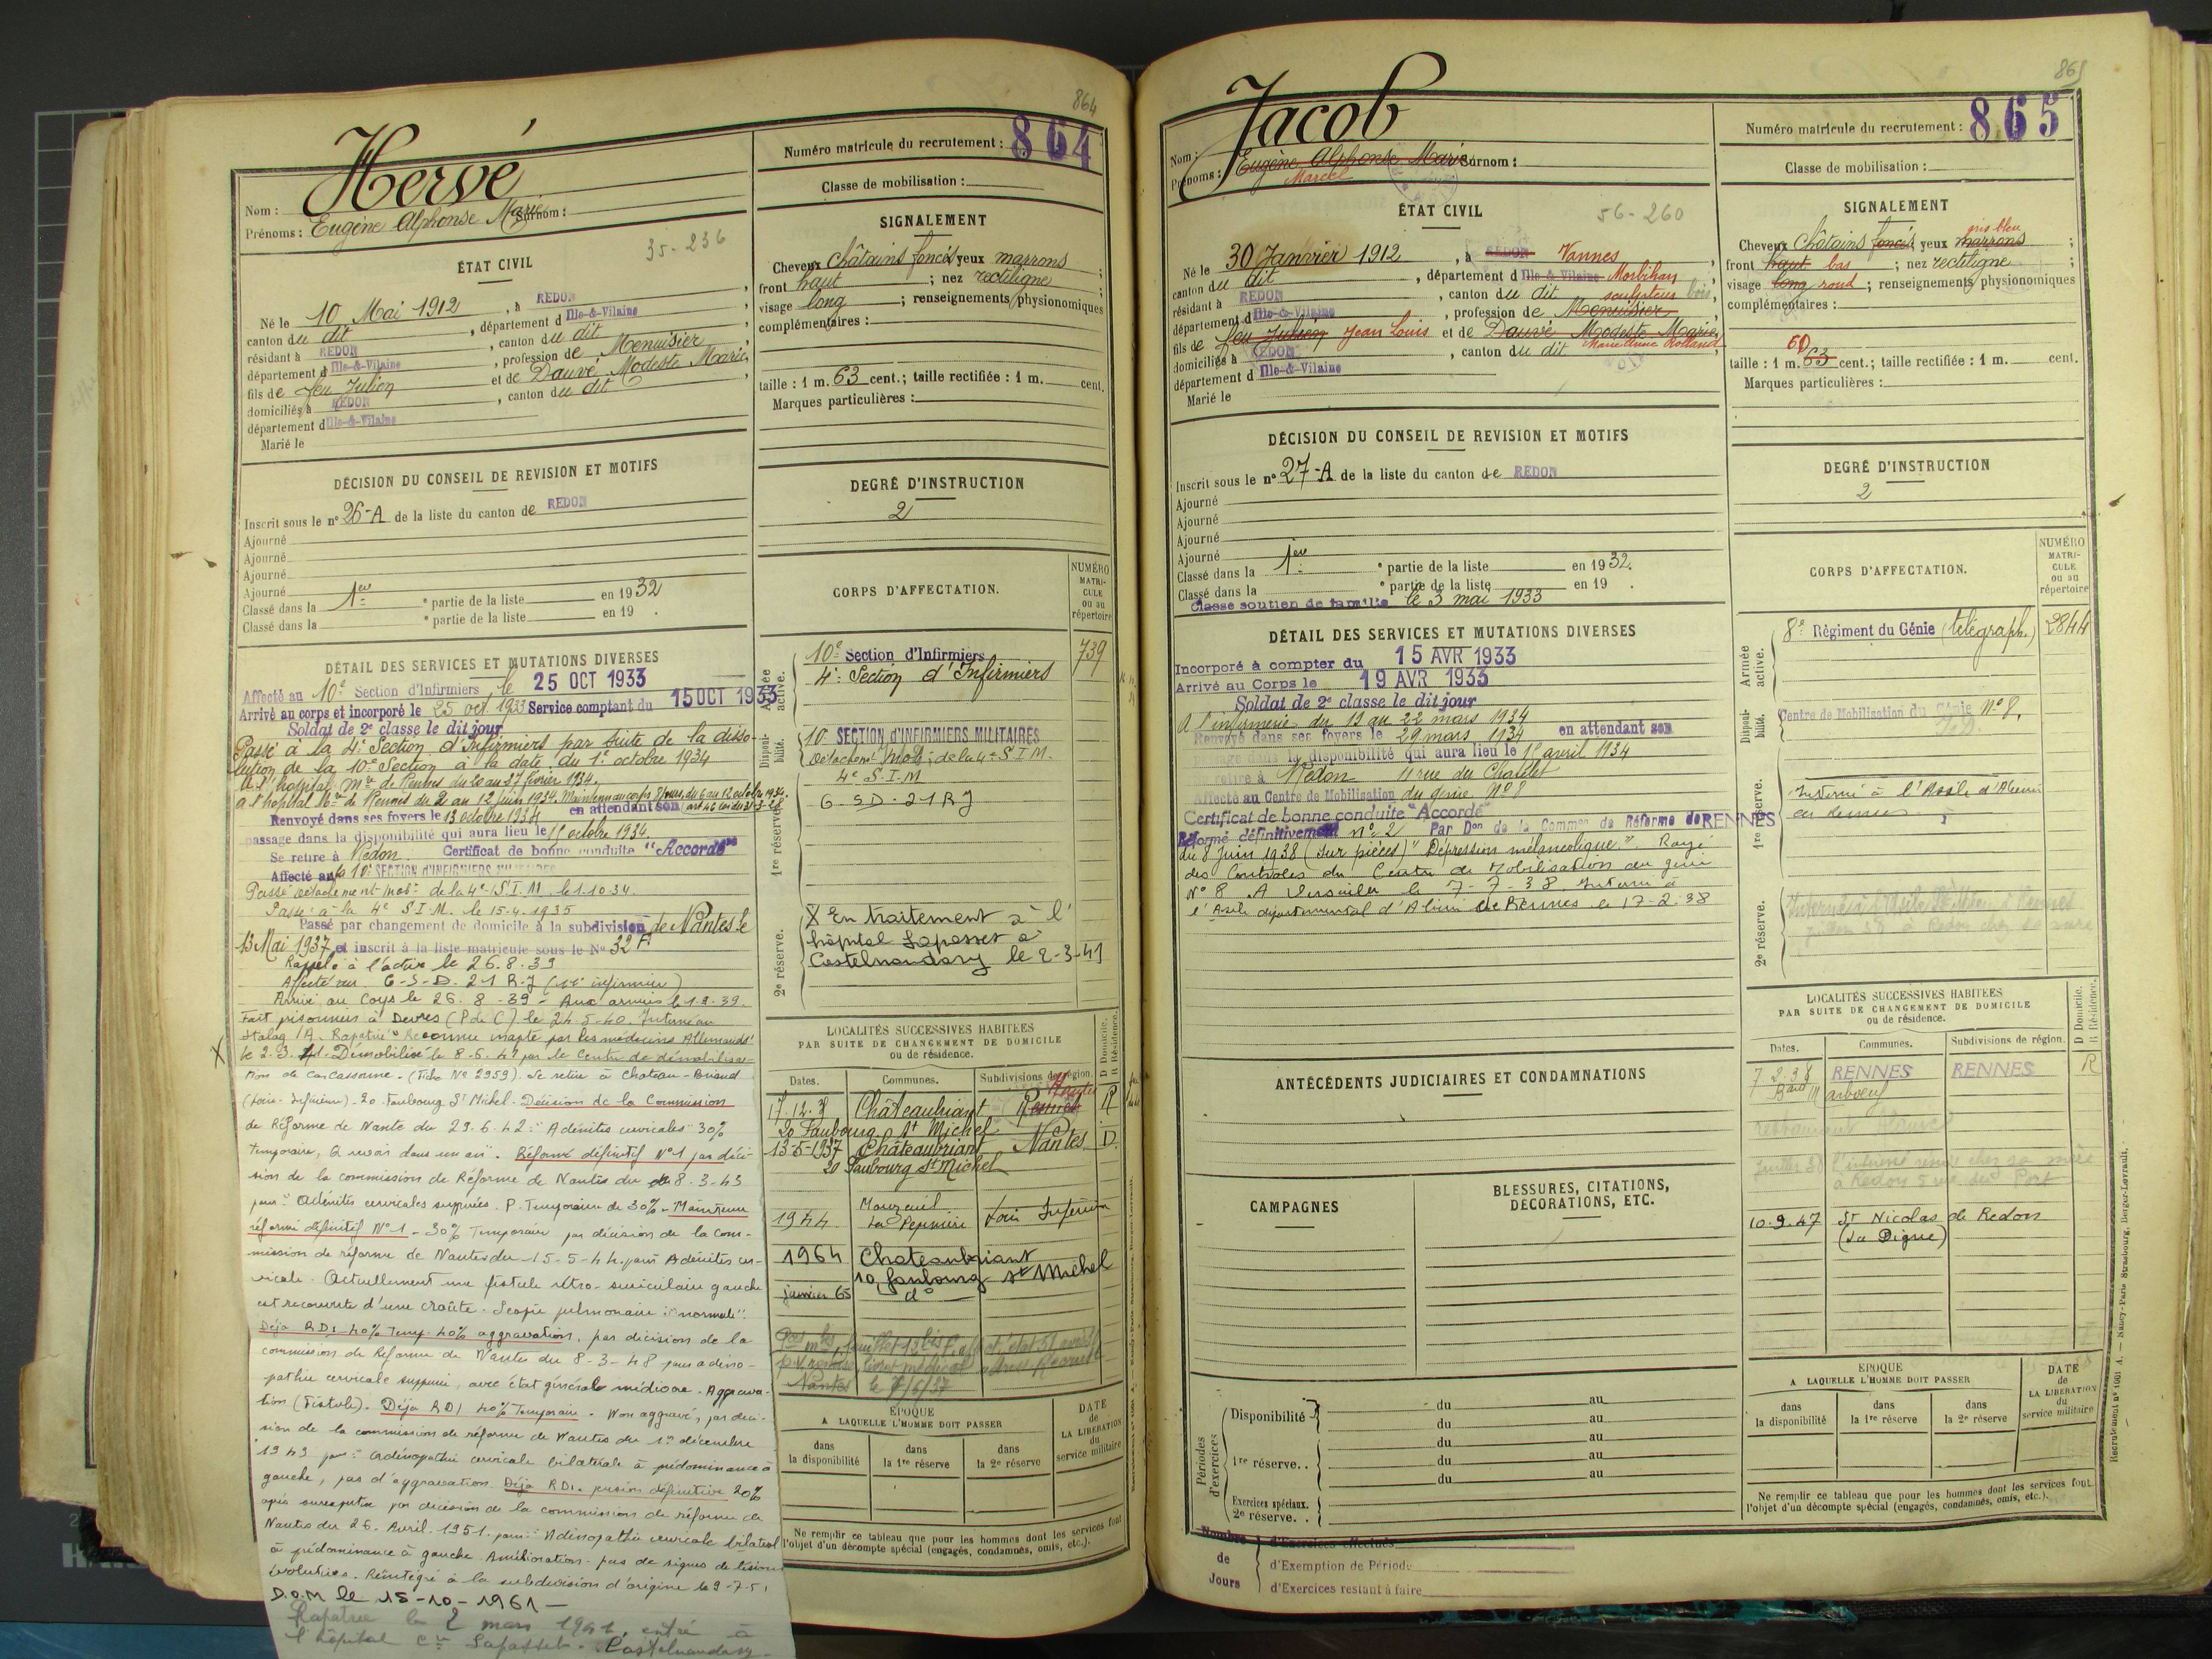 864
Hervé
Numéro matricule du recrutement : 864
Nom :
Prénoms : Eugène Alphonse Marie Surnom :
Classe de mobilisation :
35-236
ÉTAT CIVIL
Né le 10 Mai 1912, à REDON,
canton du dit, département d Ille-&-Vilaine,
résidant à REDON, canton du dit,
département d Ille-&-Vilaine, profession de Menuisier,
fils de feu Julien et de Dauvé Modeste Marie,
domiciliés à REDON, canton du dit,
département d Ille-&-Vilaine
Marié le
SIGNALEMENT
Cheveux châtains foncés, yeux marrons ;
front haut ; nez rectiligne ;
visage long ; renseignements physionomiques
complémentaires :
taille : 1 m. 63 cent.; taille rectifiée : 1 m. cent.
Marques particulières :
DÉCISION DU CONSEIL DE REVISION ET MOTIFS
Inscrit sous le n° 26-A de la liste du canton de REDON
Ajourné
Ajourné
Ajourné
Ajourné
Classé dans la 1ere ° partie de la liste en 1932
Classé dans la ° partie de la liste en 19 .
DEGRÉ D'INSTRUCTION
2
DÉTAIL DES SERVICES ET MUTATIONS DIVERSES
Affecté au 10e Section d'Infirmiers le 25 OCT 1933
Arrivé au corps et incorporé le 25 oct. 1933 Service comptant du 15 OCT 1933
Soldat de 2e classe le dit jour
Passé à la 4e Section d'Infirmiers par suite de la disso-
lution de la 10e Section à la date du 1e octobre 1934
A l'hôpital Mre de Rennes du 20 au 27 février 1934.
a l'hôpital Mre de Rennes du 2 au 12 juin 1934. Maintenu au corps 7 jours, du 6 au 12 octobre 1934.
Renvoyé dans ses foyers le 13 octobre 1934 en attendant son
passage dans la disponibilité qui aura lieu le 15 octobre 1934.
Se retire à Redon. Certificat de bonne conduite "Accordé"
Affecté au 10e SECTION D'INFIRMIERS MILITAIRES
Passé détachement mobre de la 4e S I M. le 1.10.34.
Passé à la 4e S.I.M. le 15-4-1935
Passé par changement de domicile à la subdivision de Nantes le
13 Mai 1937 et inscrit à la liste matricule sous le No 32 F.
Rappelé à l'active le 26.8.39
Affecté au 6-S-D. 21 R.J (infirmier)
Arrivé au Corps le 26.8-39 - Aux armées le 1.9.39.
Fait prisonnier à Desvres (P de C) le 24-5-40. Interné au
Stalag IA. Rapatrié "Reconnu inapte par les médecins Allemands"
X le 2.3.41. Démobilisé le 8-6.41 par le Centre de démobilisa-
tion de Carcassonne. (Fiche No 2959). Se retire à Chateau-Briand
(Loire-Inférieure) 20 Faubourg St Michel. Décision de la Commission
de Réforme de Nante du 29.6.42: "Adénites cervicales" 30%
temporaire, à revoir dans un an". Réformé définitif No 1 par déci-
sion de la commission de Réforme de Nantes du 8-3-43
pour "Adénites cervicales suppurées. P. Temporaire de 30% - Maintenu
réformé définitif No 1 - 30% Temporaire par décision de la com-
mission de réforme de Nantes du 15-5-44. pour Adénites cer-
vicale. Actuellement une fistule rétro-auriculaire gauche
est recouverte d'une croûte. Scopie pulmonaire : "normale".
Déjà RD1 40% Temp. 40% aggravation, par décision de la
commission de Réforme de Nantes du 8-3-48 pour adéno-
pathie cervicale suppurée, avec état général médiocre. Aggrava-
tion (Fistule). Déjà RD1 40% Temporaire. Non aggravé, par déci-
sion de la commission de réforme de Nantes du 1er décembre
1949 pour: adénopathie cervicale bilatérale à prédominance à
gauche, pas d'aggravation. Déjà RD1. pension définitive 20%
par décision de la commission de réforme de
Nantes du 26. Avril. 1951. pour: Adénopathie cervicale bilatéral
à prédominance à gauche. Amélioration - pas de signes de lésions
évolutives. Réintégré à la subdivision d'origine le 9-7-51
D.O.M le 15-10-1961 -
Rapatrié le 2 mars 1941, entré à
l'hôpital Lapasset. Castelnaudary
CORPS D'AFFECTATION.
NUMÉRO MATRICULE ou au répertoire
Armée active.
10e Section d'Infirmiers 739
4e Section d'Infirmiers
Disponibilité.
10e SECTION D'INFIRMIERS MILITAIRES
Détachemt Mobre de la 4e S I M.
4e S.I.M
1re réserve.
6-S.D.-21 R J
2e réserve.
X En traitement à l'
hôpital Lapasset à
Castelnaudary le 2-3-41
LOCALITÉS SUCCESSIVES HABITÉES
PAR SUITE DE CHANGEMENT DE DOMICILE
ou de résidence.
D Domicile. R Résidence.
Dates. Communes. Subdivisions de région.
17.12.3 Châteaubriant Rennes Nantes R
20 Faubourg St Michel
13-5-1937 Châteaubriant Nantes D.
20 Faubourg St Michel
1944 Mouzeuil Loire Inférieure
1964 Chateaubriant
10 faubourg St Michel
janvier 65 do
Nantes le
ÉPOQUE
A LAQUELLE L'HOMME DOIT PASSER
dans la disponibilité
dans la 1re réserve
dans la 2e réserve
DATE de LA LIBÉRATION du service militaire
Ne remplir ce tableau que pour les hommes dont les services font
l'objet d'un décompte spécial (engagés, condamnés, omis, etc.).
865
Jacob
Numéro matricule du recrutement : 865
Nom :
Prénoms : Eugène Alphonse Marie Surnom :
Marcel
Classe de mobilisation :
56-260
ÉTAT CIVIL
Né le 30 Janvier 1912, à REDON Vannes,
canton du dit, département d Ille-&-Vilaine Morbihan,
résidant à REDON, canton du dit, sculpteur bois,
département d Ille-&-Vilaine, profession de Menuisier,
fils de feu Julien Jean Louis et de Dauvé Modeste Marie, Marie Anne Rolland
domiciliés à REDON, canton du dit
département d Ille-&-Vilaine
Marié le
SIGNALEMENT
gris bleu
Cheveux châtains foncés, yeux marrons ;
front haut bas ; nez rectiligne ;
visage long rond ; renseignements physionomiques
complémentaires :
60
taille : 1 m. 63 cent.; taille rectifiée : 1 m. cent.
Marques particulières :
DÉCISION DU CONSEIL DE REVISION ET MOTIFS
Inscrit sous le n° 27-A de la liste du canton de REDON
Ajourné
Ajourné
Ajourné
Ajourné
Classé dans la 1ere ° partie de la liste en 1932.
Classé dans la ° partie de la liste en 19 .
Classé soutien de famille le 3 mai 1933
DEGRÉ D'INSTRUCTION
2
DÉTAIL DES SERVICES ET MUTATIONS DIVERSES
Incorporé à compter du 15 AVR 1933
Arrivé au Corps le 19 AVR 1933
Soldat de 2e classe le dit jour
A l'infirmerie du 19 au 22 mars 1934
Renvoyé dans ses foyers le 29 mars 1934 en attendant son
passage dans la disponibilité qui aura lieu le 15 avril 1934
Se retire à Redon 11 rue du Chatelet
Affecté au Centre de Mobilisation du génie No 8
Certificat de bonne conduite "Accordé"
Réformé définitivement No 2 Par Don de la Common de Réforme de RENNES
du 8 Juin 1938 (sur pièces) "Dépression mélancolique". Rayé
des Contrôles du Centre de Mobilisation du génie
No 8. A Versailles le 7-7-38. Interné à
l'Asile départemental d'Alién de Rennes le 17-2-38
ANTÉCÉDENTS JUDICIAIRES ET CONDAMNATIONS
CAMPAGNES
BLESSURES, CITATIONS, DÉCORATIONS, ETC.
CORPS D'AFFECTATION.
NUMÉRO MATRICULE ou au répertoire
Armée active.
8e Régiment du Génie (télégraph.) 2844
Disponibilité.
Centre de Mobilisation du Génie No 8.
1re réserve.
Interné à l'Asile d'Alienés
de Rennes
2e réserve.
LOCALITÉS SUCCESSIVES HABITÉES
PAR SUITE DE CHANGEMENT DE DOMICILE
ou de résidence.
D Domicile. R Résidence.
Dates. Communes. Subdivisions de région.
7 2.38 RENNES RENNES R
Juillet 38 l'intéressé réside chez sa mère
à Redon 5 rue du Port
10-9-47 St Nicolas de Redon
(La Digue)
Périodes d'exercices
Disponibilité du au
du au
1re réserve.. du au
du au
du au
Exercices spéciaux.
2e réserve. .
Nombre de Jours
d'Exercices effectués
d'Exemption de Période
d'Exercices restant à faire
ÉPOQUE
A LAQUELLE L'HOMME DOIT PASSER
dans la disponibilité
dans la 1re réserve
dans la 2e réserve
DATE de LA LIBÉRATION du service militaire
Ne remplir ce tableau que pour les hommes dont les services font
l'objet d'un décompte spécial (engagés, condamnés, omis, etc.).
Recrutement n° 1001 A. — Nancy-Paris Strasbourg, Berger-Levrault.